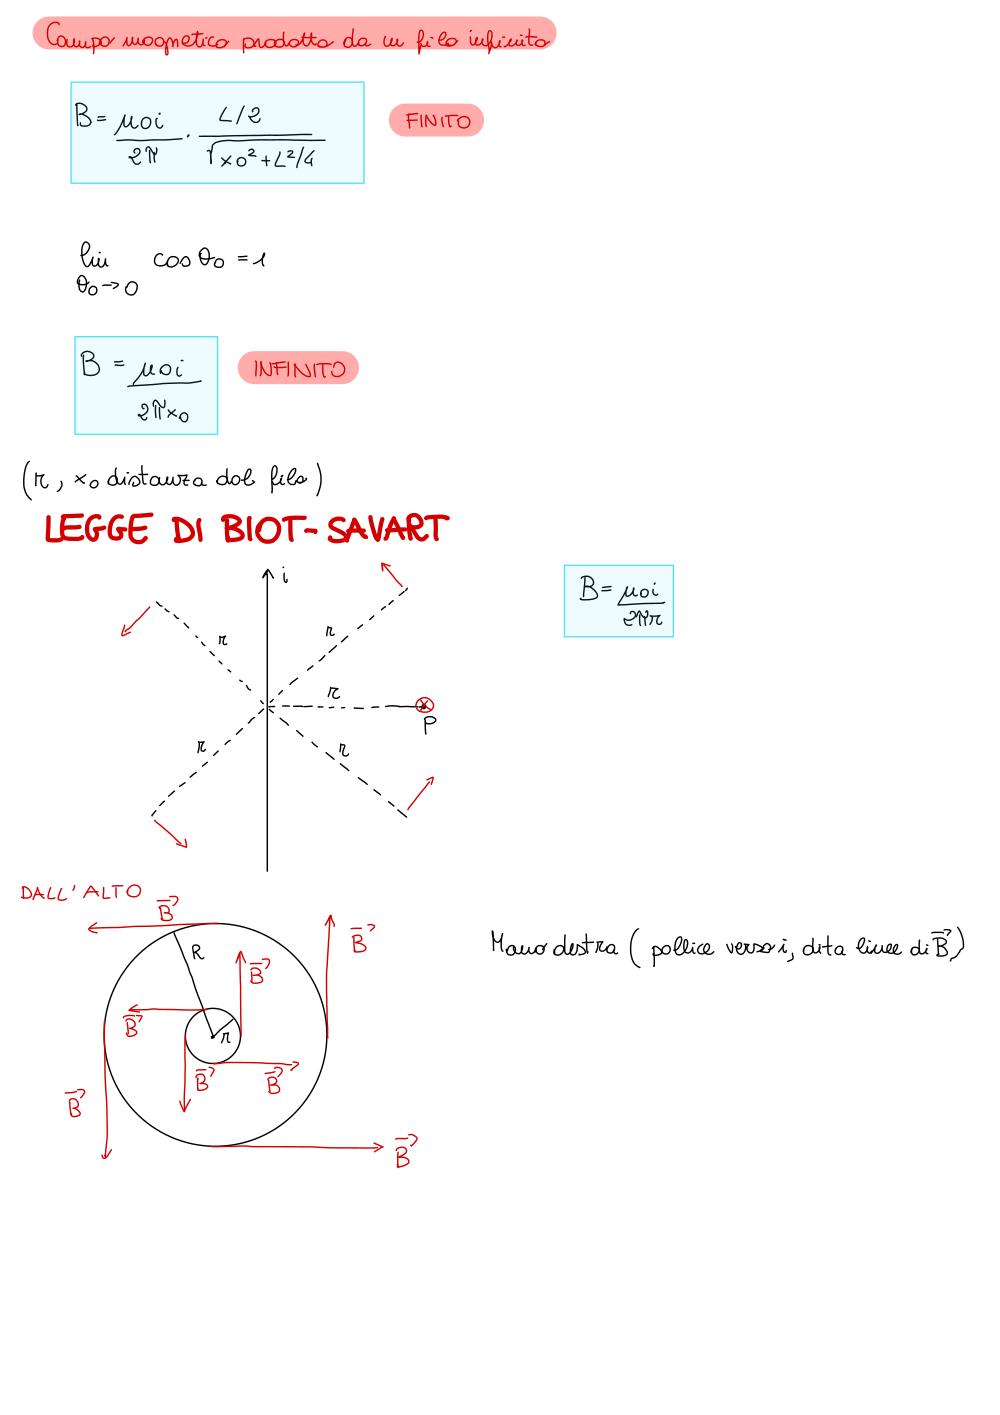 Campo magnetico prodotto da un filo infinito
B = μ₀i / 2π · L/2 / √(x₀² + L²/4)
FINITO
lim cos θ₀ = 1
θ₀ → 0
B = μ₀i / 2πx₀
INFINITO
(r, x₀ distanza dal filo)
LEGGE DI BIOT-SAVART
i
B = μ₀i / 2πr
r
r
r
P
r
r
DALL'ALTO
B⃗
B⃗
R
Mano destra ( pollice verso i, dita linee di B⃗ )
B⃗
B⃗
r
B⃗
B⃗
B⃗
B⃗